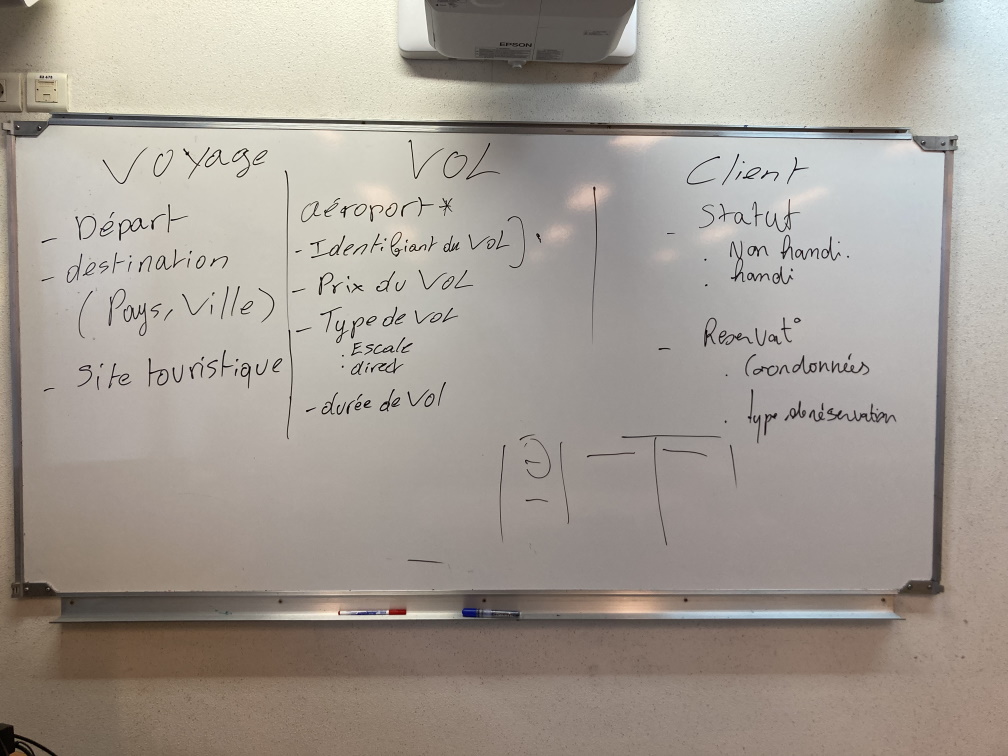 EPSON
Voyage
- Départ
- destination
(Pays, Ville)
- Site touristique
VOL
aéroport *
- Identifiant du VOL
- Prix du VOL
- Type de VOL
. Escale
. direct
- durée de Vol
Client
- Statut
. Non handi.
. handi
- Reservat°
. Coordonnées
. type de réservation